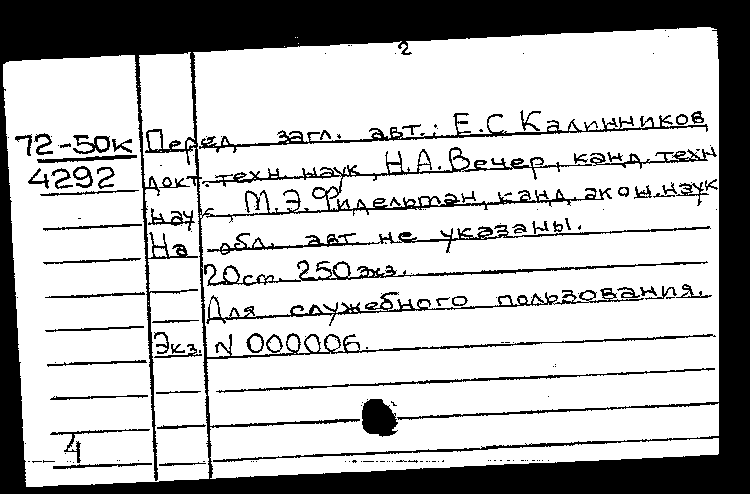 2
72-50к Перед загл. авт.: Е.С Калинников,
4292 докт. техн. наук, Н.А.Вечер, канд. техн
наук, М.Э.Фидельман, канд. экон. наук
На обл. авт не указаны.
20 ст. 250 экз.
Для служебного пользования.
Экз. N 000006.
4